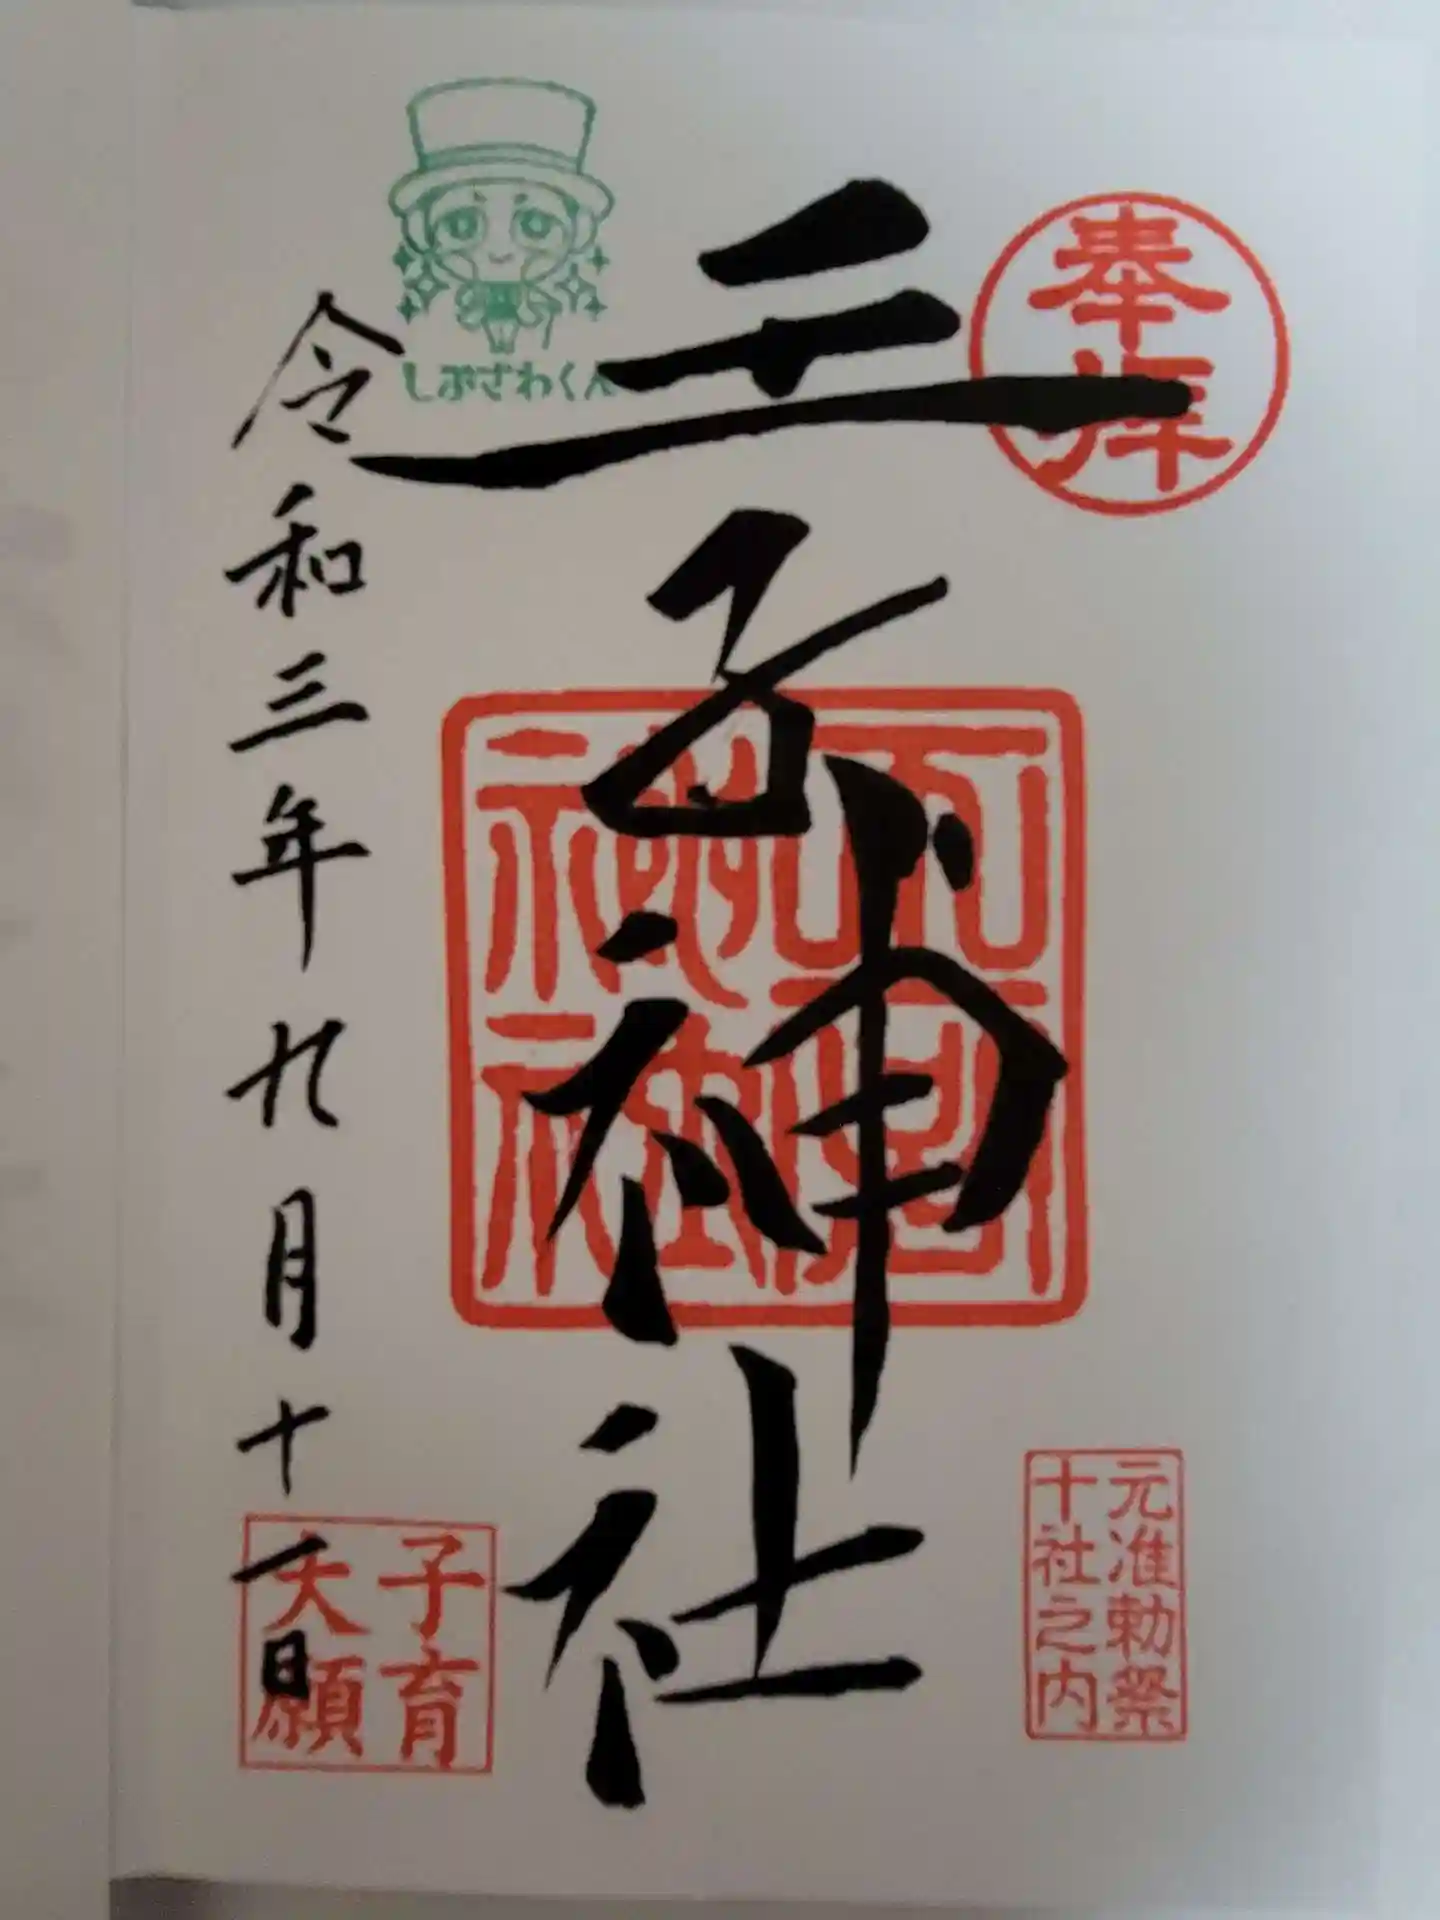 奉拝
元准勅祭
十社之内
王子神社
神社
しぶざわくん
令和三年九月十一日
子育
大願